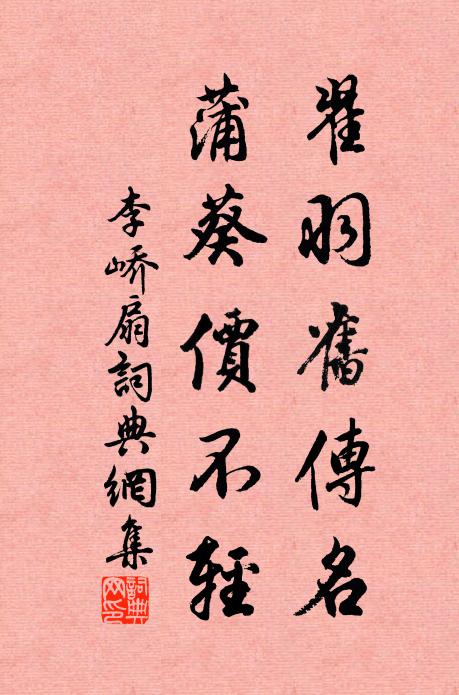 翟羽舊傳名
蒲葵價不輕
李嶠扇詞典網集
詞典網印